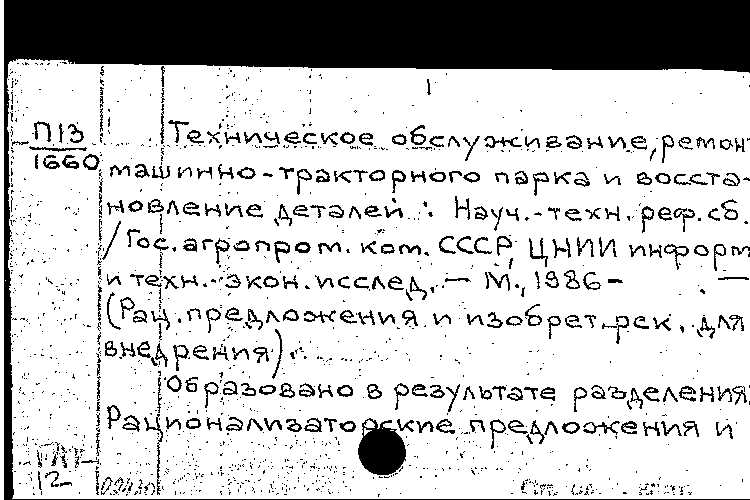 П13
1660
Техническое обслуживание, ремонт
машинно-тракторного парка и восста-
новление деталей : Науч.-техн. реф. сб.
/Гос. агропром. ком. СССР, ЦНИИ информ
и техн.-экон. исслед. — М., 1986 - . —
(Рац. предложения и изобрет., рек. для
внедрения).
Образовано в результате разделения:
Рационализаторские предложения и
12